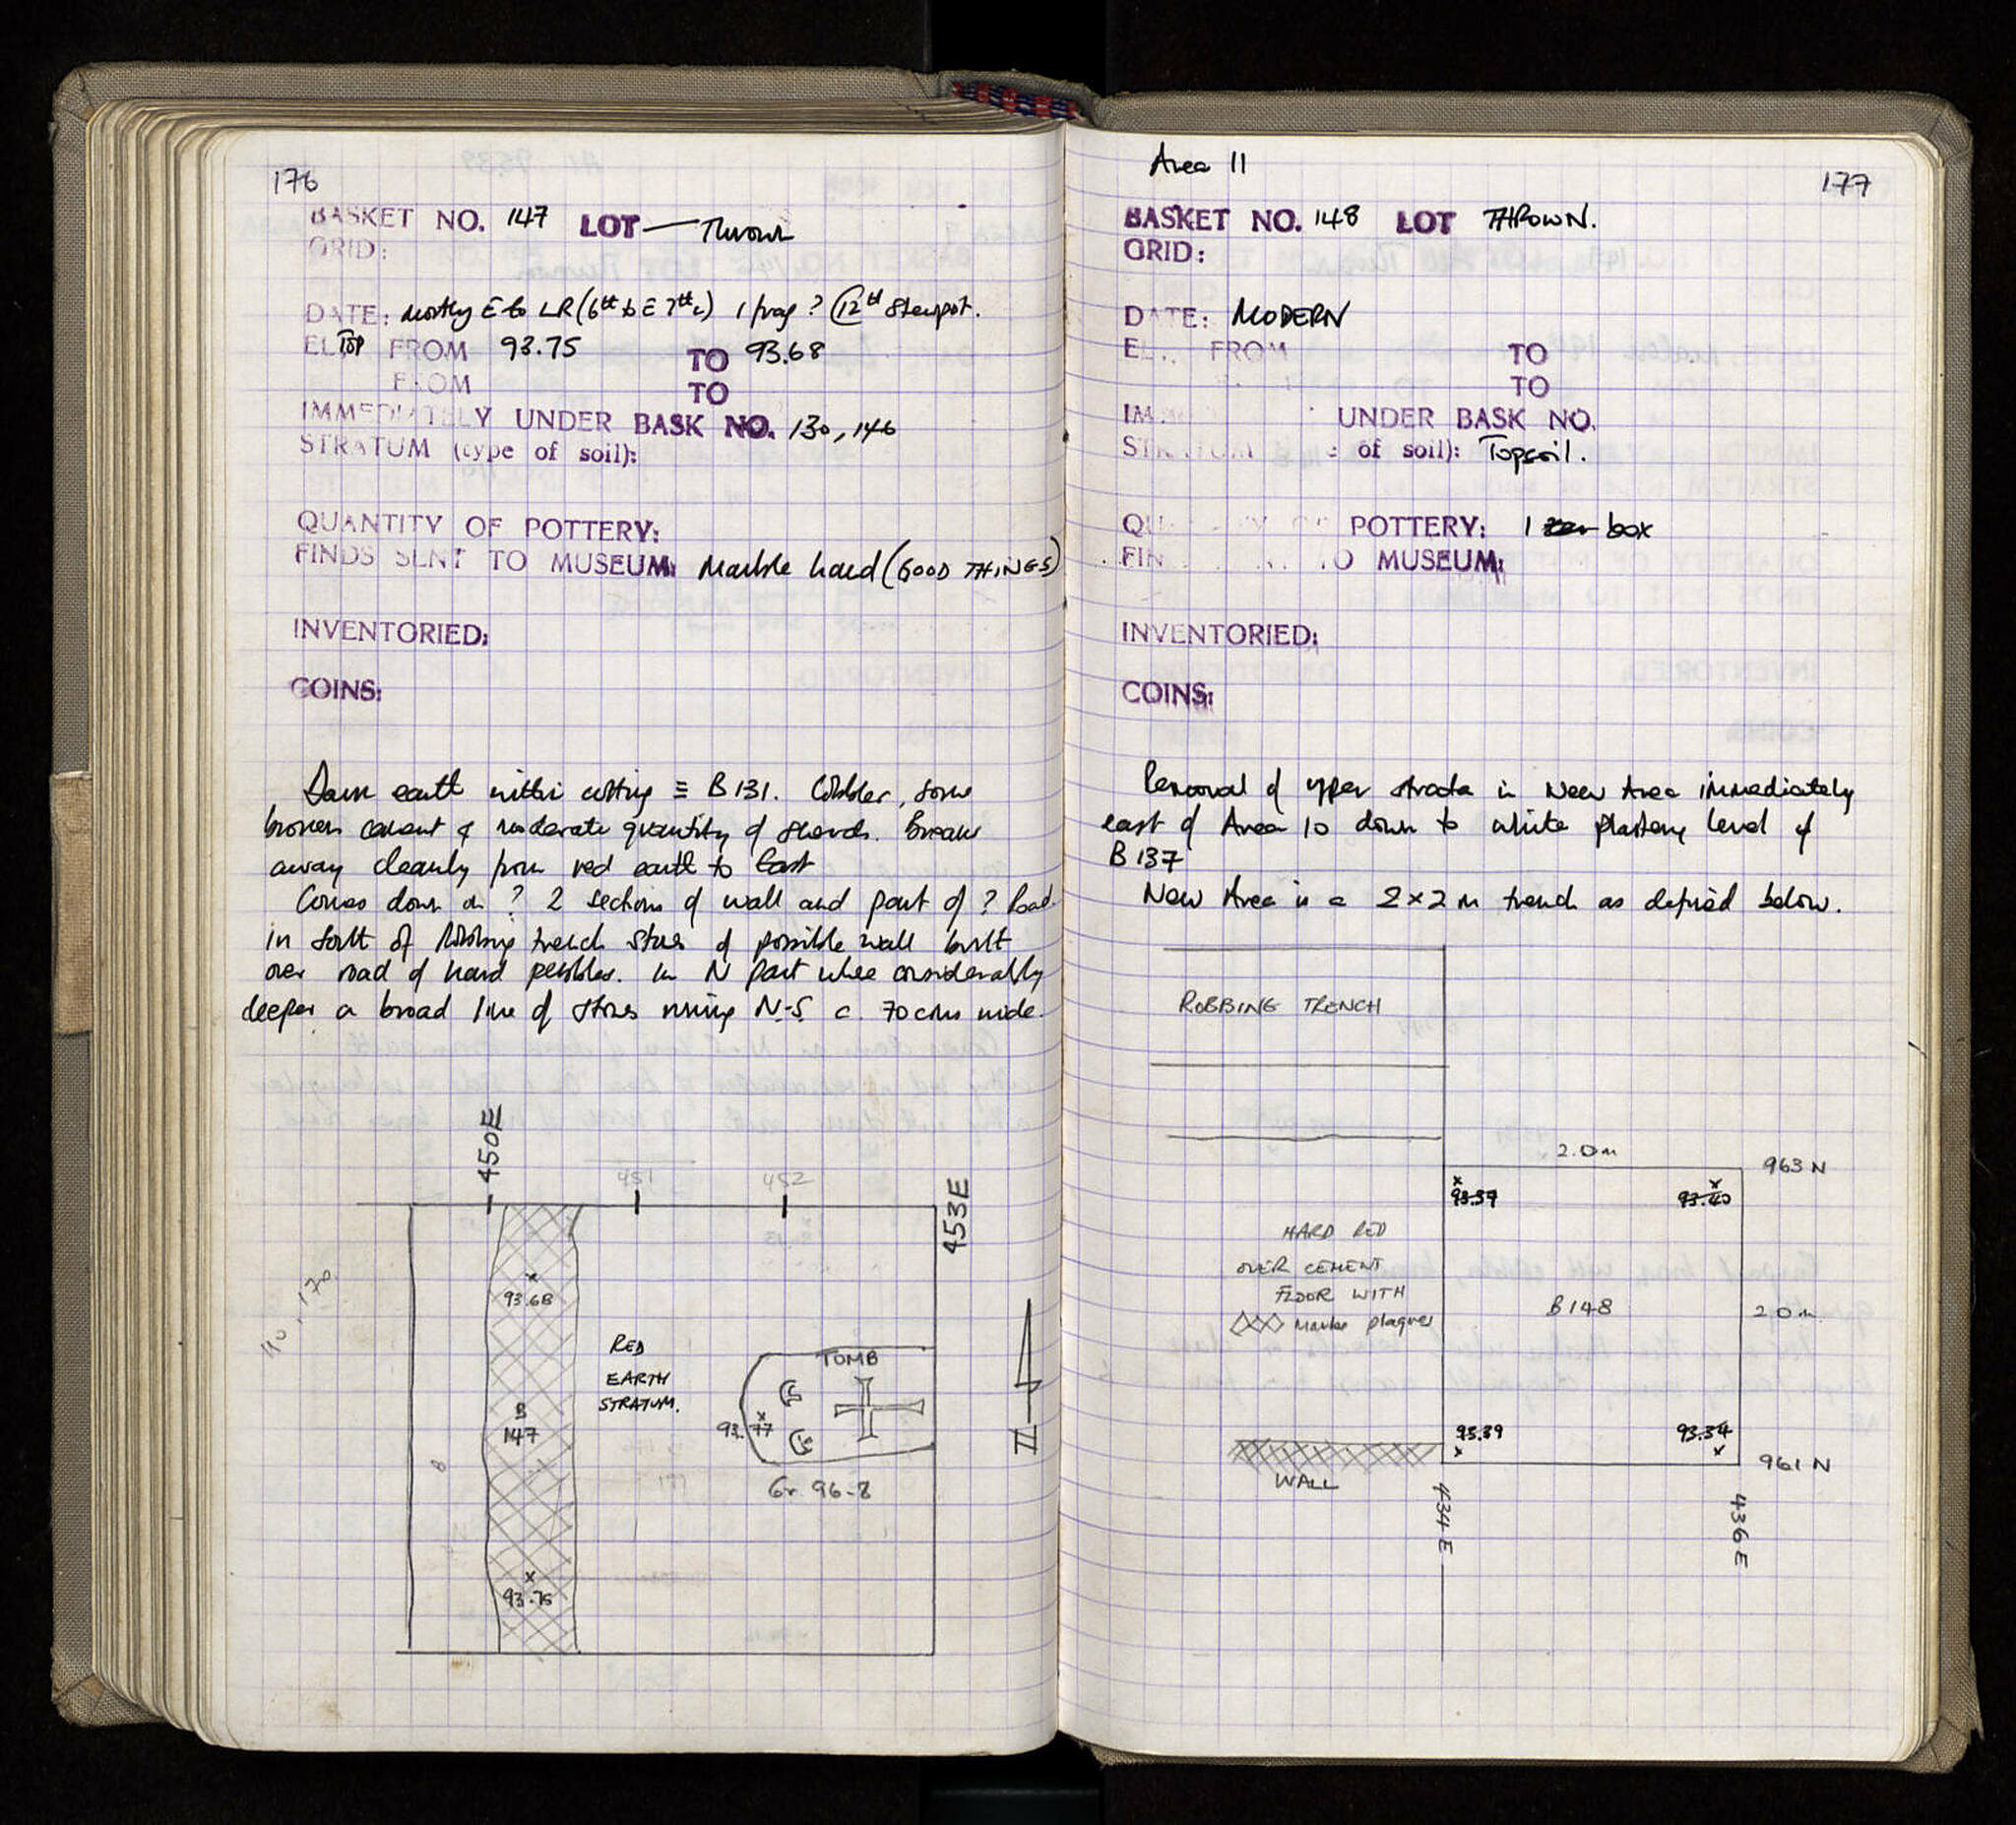 176
BASKET NO. 147 LOT — Thrown
GRID:
DATE: Mostly E to LR (6th to E 7th c) 1 frag ? 12th Stewpot.
EL Top FROM 93.75 TO 93.68
FROM TO
IMMEDIATELY UNDER BASK NO. 130, 146
STRATUM (type of soil):
QUANTITY OF POTTERY:
FINDS SENT TO MUSEUM: Marble hand (GOOD THINGS)
INVENTORIED:
COINS:
earth within cutting ≡ B 131. Cobbles, some
broken cement & moderate quantity of sherds. Breaks
away cleanly from red earth to East
Comes down on ? 2 sections of wall and part of ? Road.
In South of Robbing trench stones of possible wall built
over road of hard pebbles. In N part where considerably
deeper a broad line of stones running N-S c. 70 cms wide.
450E
451
452
453E
110, 170
93.68
RED
EARTH
STRATUM.
TOMB
B
147
93.77
Gr. 96-8
8
93.75
Area 11
177
BASKET NO. 148 LOT THROWN.
GRID:
DATE: MODERN
EL. FROM TO
TO
IM UNDER BASK NO.
STRATUM of soil): Topsoil.
QU POTTERY: 1 box
FIN TO MUSEUM:
INVENTORIED:
COINS:
Removal of upper strata in New Area immediately
east of Area 10 down to white plastery level of
B 137
New Area is a 2×2 m trench as defined below.
ROBBING TRENCH
2.0 m
963 N
93.37
93.40
HARD RED
OVER CEMENT
FLOOR WITH
Marble plaques
B 148
2.0 m
93.39
93.34
WALL
961 N
434 E
436 E